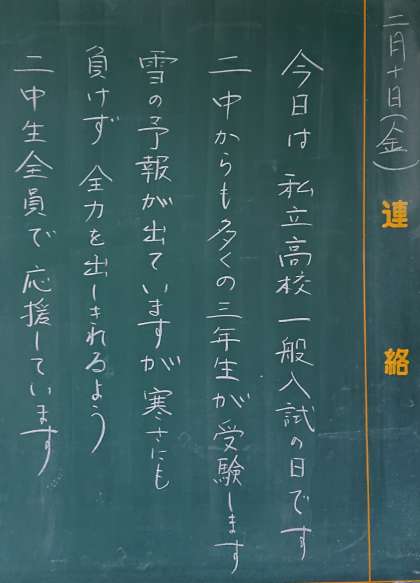 二月十日(金)
連絡
今日は 私立高校一般入試の日です
二中からも多くの三年生が受験します
雪の予報が出ていますが寒さにも
負けず 全力を出しきれるよう
二中生全員で 応援しています